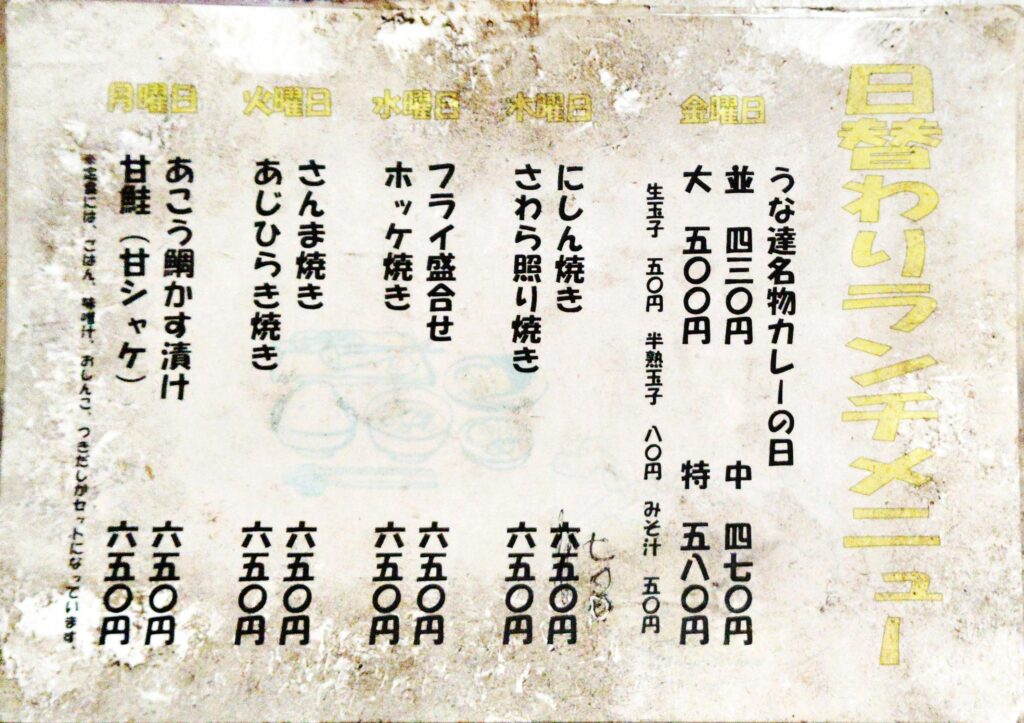 日替わりランチメニュー
金曜日
うな達名物カレーの日
並 四三〇円 中 四七〇円
大 五〇〇円 特 五八〇円
生玉子 五〇円 半熟玉子 八〇円 みそ汁 五〇円
木曜日
にしん焼き 六五〇円
七〇〇
さわら照り焼き 六五〇円
水曜日
フライ盛合せ 六五〇円
ホッケ焼き 六五〇円
火曜日
さんま焼き 六五〇円
あじひらき焼き 六五〇円
月曜日
あこう鯛かす漬け 六五〇円
甘鮭（甘シャケ） 六五〇円
定食には、ごはん、味噌汁、おしんこ、つきだしがセットになっています。